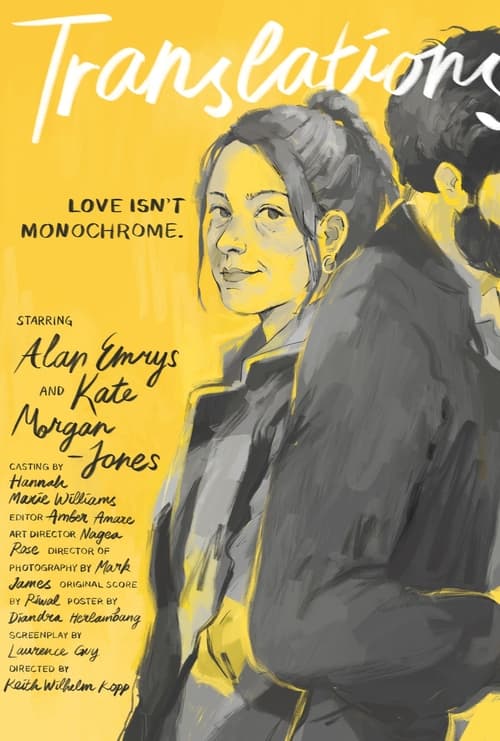 Translations
LOVE ISN'T
MONOCHROME.
STARRING
Alan Emrys
AND Kate
Morgan
-Jones
CASTING BY
Hannah
Marie Williams
EDITOR Amber Amare
ART DIRECTOR Nagea
Rose DIRECTOR OF
PHOTOGRAPHY BY Mark
James ORIGINAL SCORE
BY Riwal POSTER BY
Diandra Herlambang
SCREENPLAY BY
Laurence Guy
DIRECTED BY
Keith Wilhelm Kopp